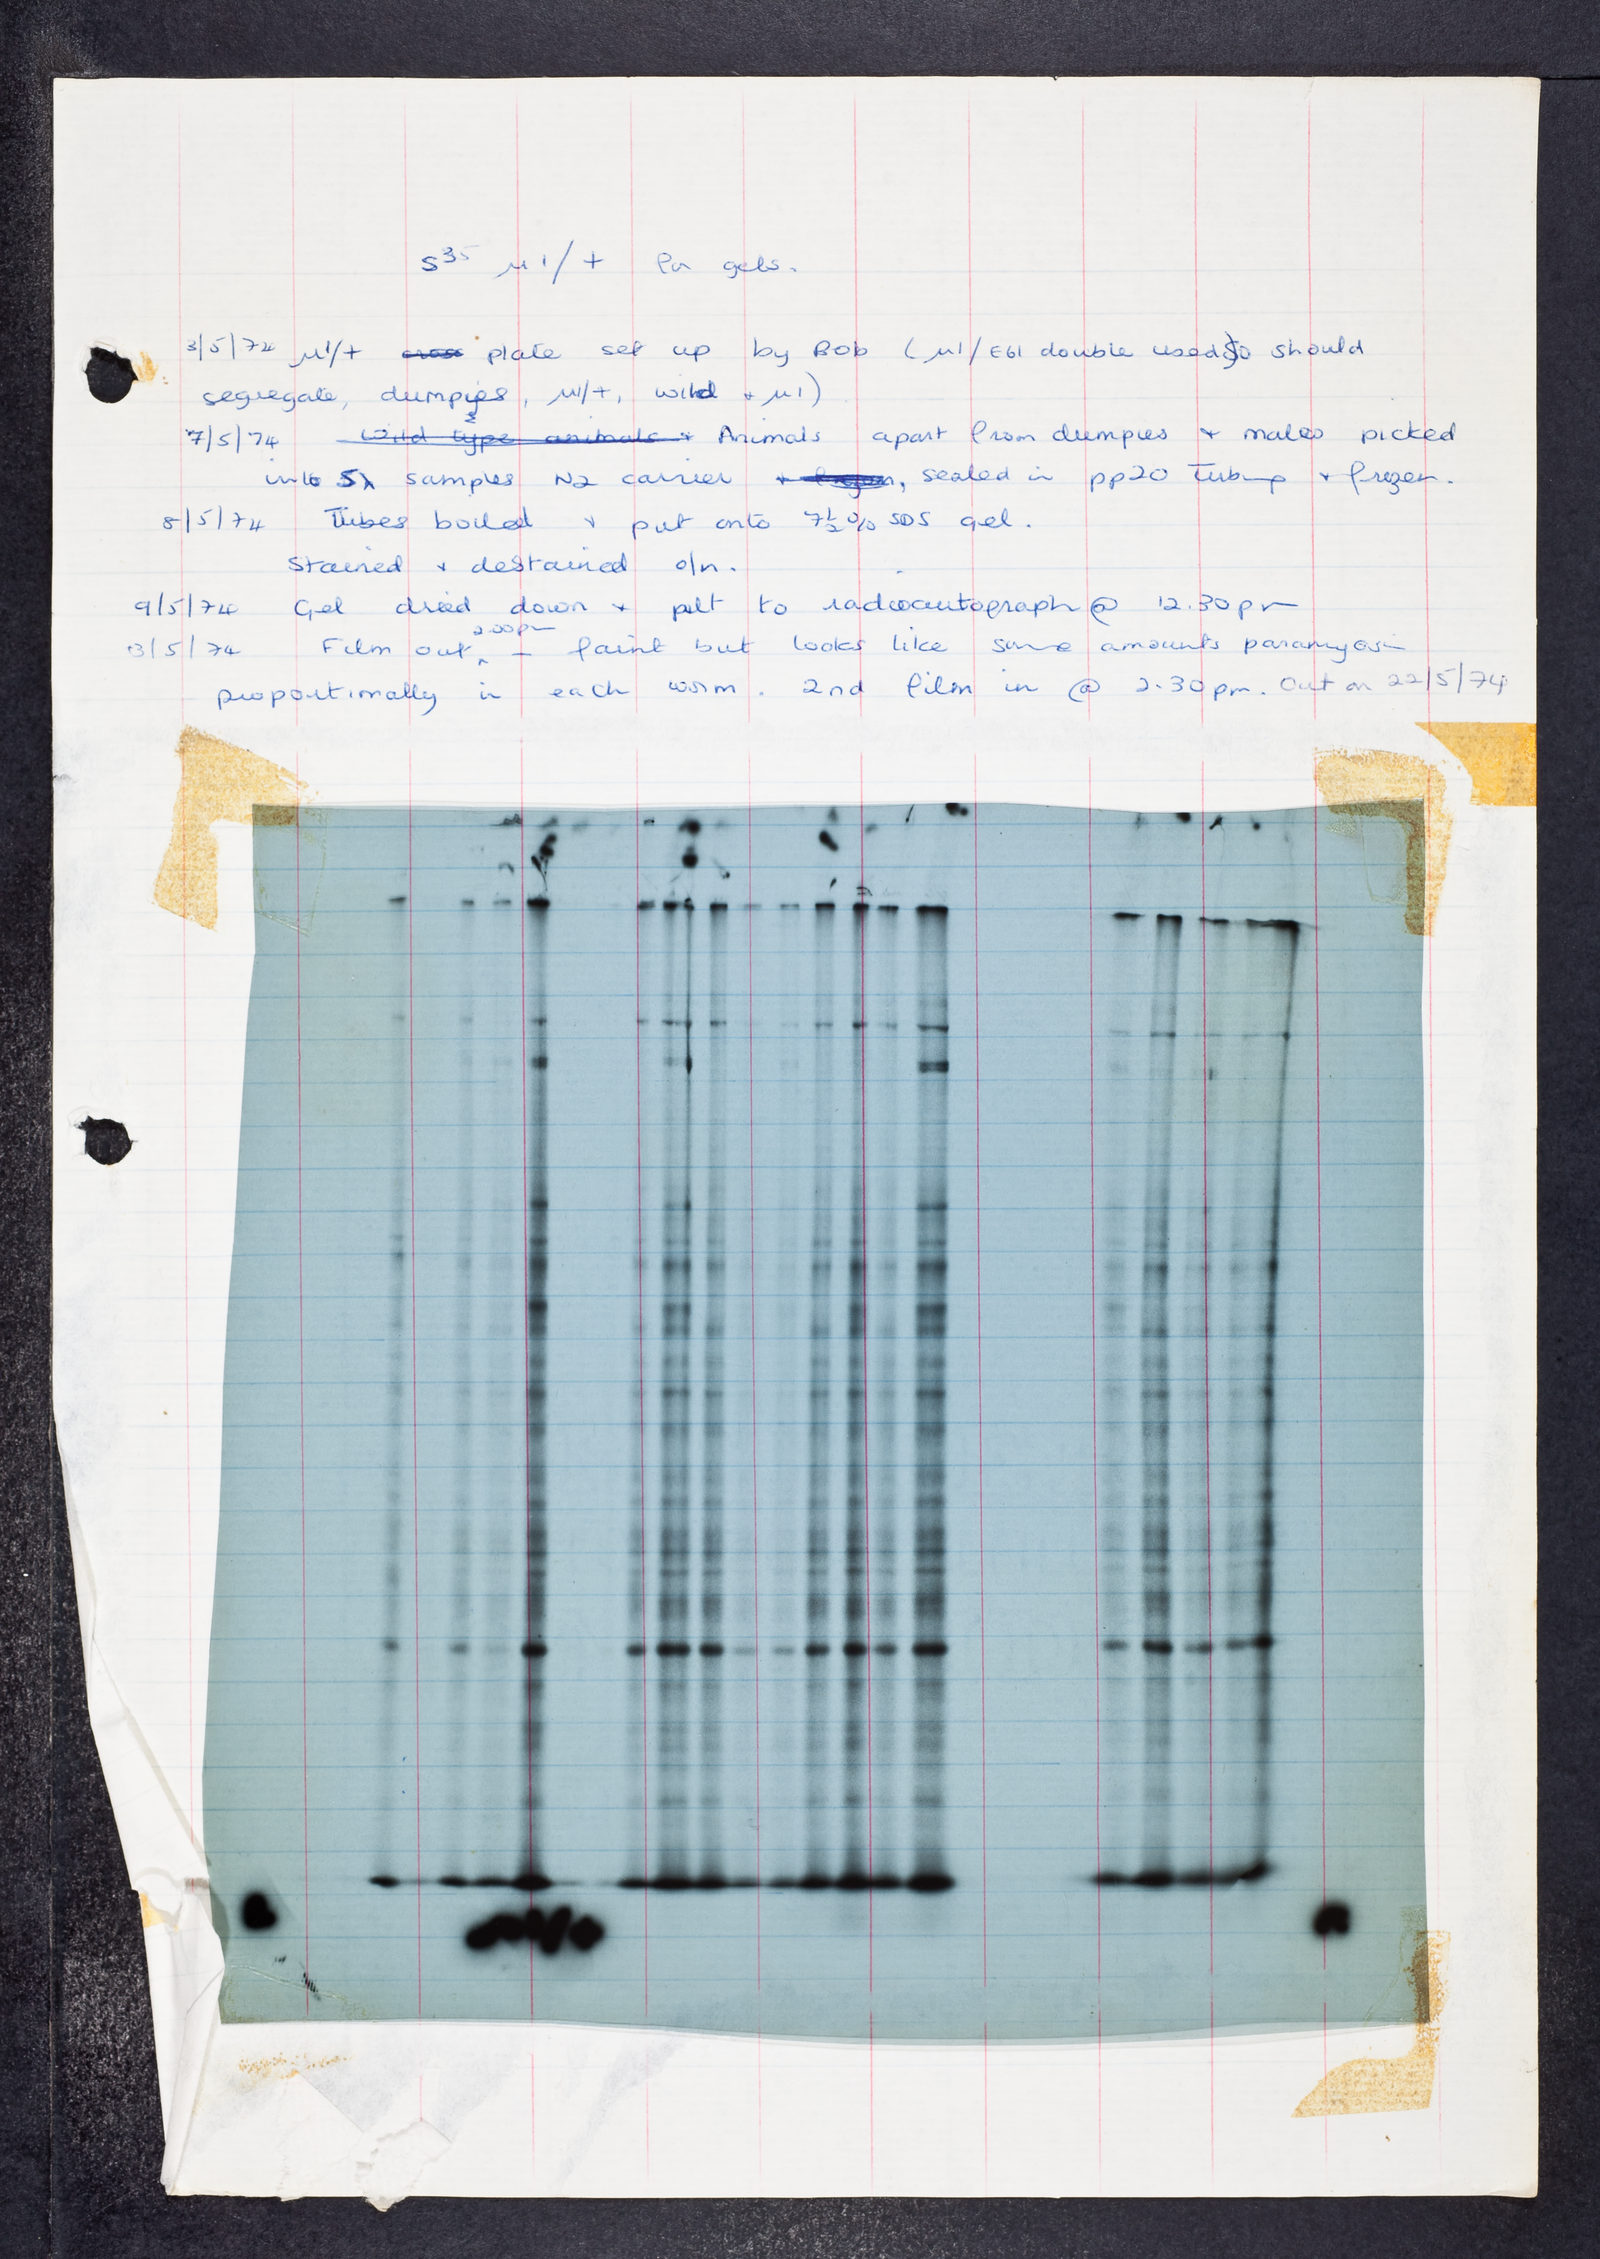 S³⁵ μ1/+ Pm gels.
3/5/74 μ1/+ cross plate set up by Bob (μ1/E61 double used) so should
segregate, dumpies, μ1/+, wild + μ1)
7/5/74 Wild type animals + Animals apart from dumpies + males picked
into 5λ samples N2 carrier, sealed in pp20 Tubing + frozen.
8/5/74 Tubes boiled + put onto 7½% SDS gel.
Stained + destained o/n.
9/5/74 Gel dried down + put to radioautograph @ 12.30pm
13/5/74 Film out 2.00pm – faint but looks like same amounts paramyosin
proportionally in each worm. 2nd film in @ 2.30pm. Out on 22/5/74